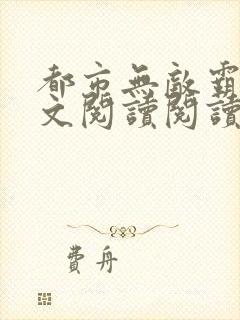 都市無敵霸
文閱讀閱讀
費舟